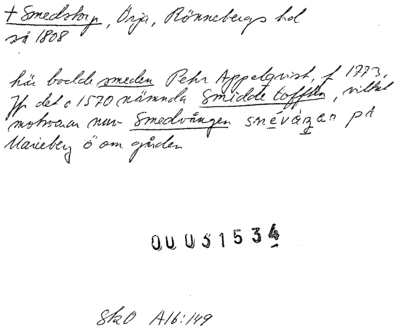 + Smedstorp, Örja, Rönnebergs hd
så 1808
här bodde smeden Pehr Appelqvist, f 1773,
Jfr det c 1570 nämnda Smidde tofften, vilket
motsvarar nuv Smedvången snévåŋan på
Marieberg ö om gården
0UU31534
SkO A16:149